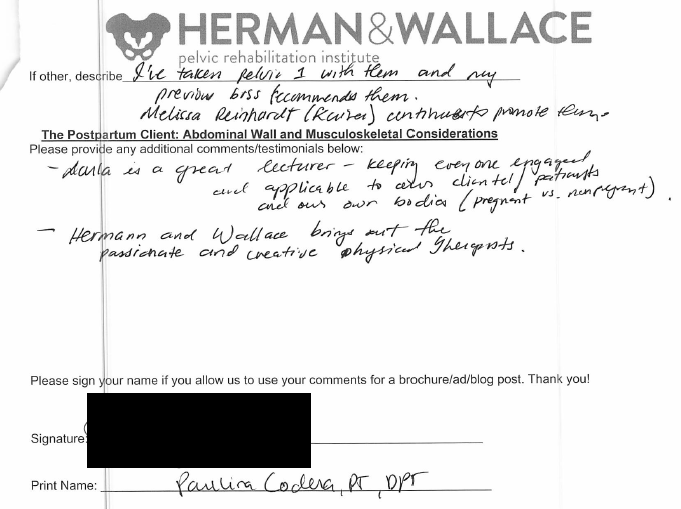 HERMAN&WALLACE
pelvic rehabilitation institute
If other, describe I've taken pelvic 1 with them and my
previous boss recommends them.
Melissa Reinhardt (Kaiser) continues to promote them.
The Postpartum Client: Abdominal Wall and Musculoskeletal Considerations
Please provide any additional comments/testimonials below:
- is a great lecturer - keeping everyone engaged
and applicable to our clientel/patients
and our own bodies (pregnant vs. nonpregnant).
- Hermann and Wallace brings out the
passionate and creative physical therapists.
Please sign your name if you allow us to use your comments for a brochure/ad/blog post. Thank you!
Signature:
Print Name: Paulina Codera, PT, DPT